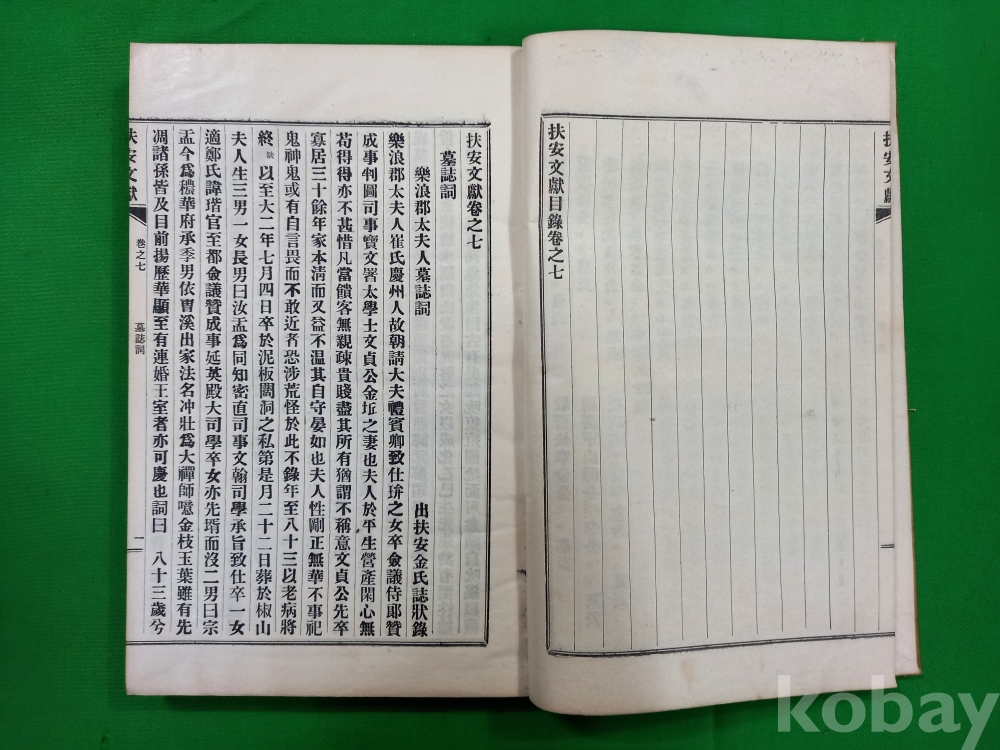 扶安文獻
扶安文獻目錄卷之七
扶安文獻卷之七
墓誌詞
樂浪郡太夫人墓誌詞 出扶安金氏誌狀錄
樂浪郡太夫人崔氏慶州人故朝請大夫禮賓卿致仕玣之女卒僉議侍郞贊
成事判圖司事寶文署太學士文貞公金坵之妻也夫人於平生營產閑心無
苟得得亦不甚惜凡當饋客無親疎貴賤盡其所有猶謂不稱意文貞公先卒
寡居三十餘年家本淸而又益不温其自守晏如也夫人性剛正無華不事祀
鬼神鬼或有自言畏而不敢近者恐涉荒怪於此不錄年至八十三以老病將
終 缺 以至大二年七月四日卒於泥板閣洞之私第是月二十二日葬於椒山
夫人生三男一女長男曰汝盂爲同知密直司事文翰司學承旨致仕卒一女
適鄭氏諱瑎官至都僉議贊成事延英殿大司學卒女亦先壻而沒二男曰宗
盂今爲禮華府承季男依曹溪出家法名冲壯爲大禪師噫金枝玉葉雖有先
凋諸孫皆及目前揚歷華顯至有連婚王室者亦可慶也詞曰 八十三歲兮
扶安文獻
卷之七
墓誌詞
一
kobay